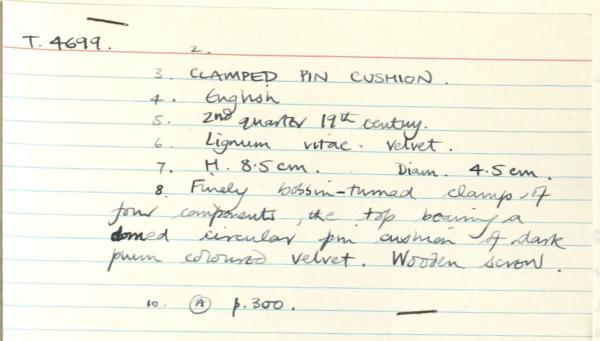 T. 4699.
2.
3. CLAMPED PIN CUSHION.
4. English
5. 2nd quarter 19th century.
6. Lignum vitae. Velvet.
7. H. 8.5cm. Diam. 4.5cm.
8. Finely bobbin-turned clamp, of
four components, the top bearing a
domed circular pin cushion of dark
plum coloured velvet. Wooden screw.
10. Ⓐ p.300.